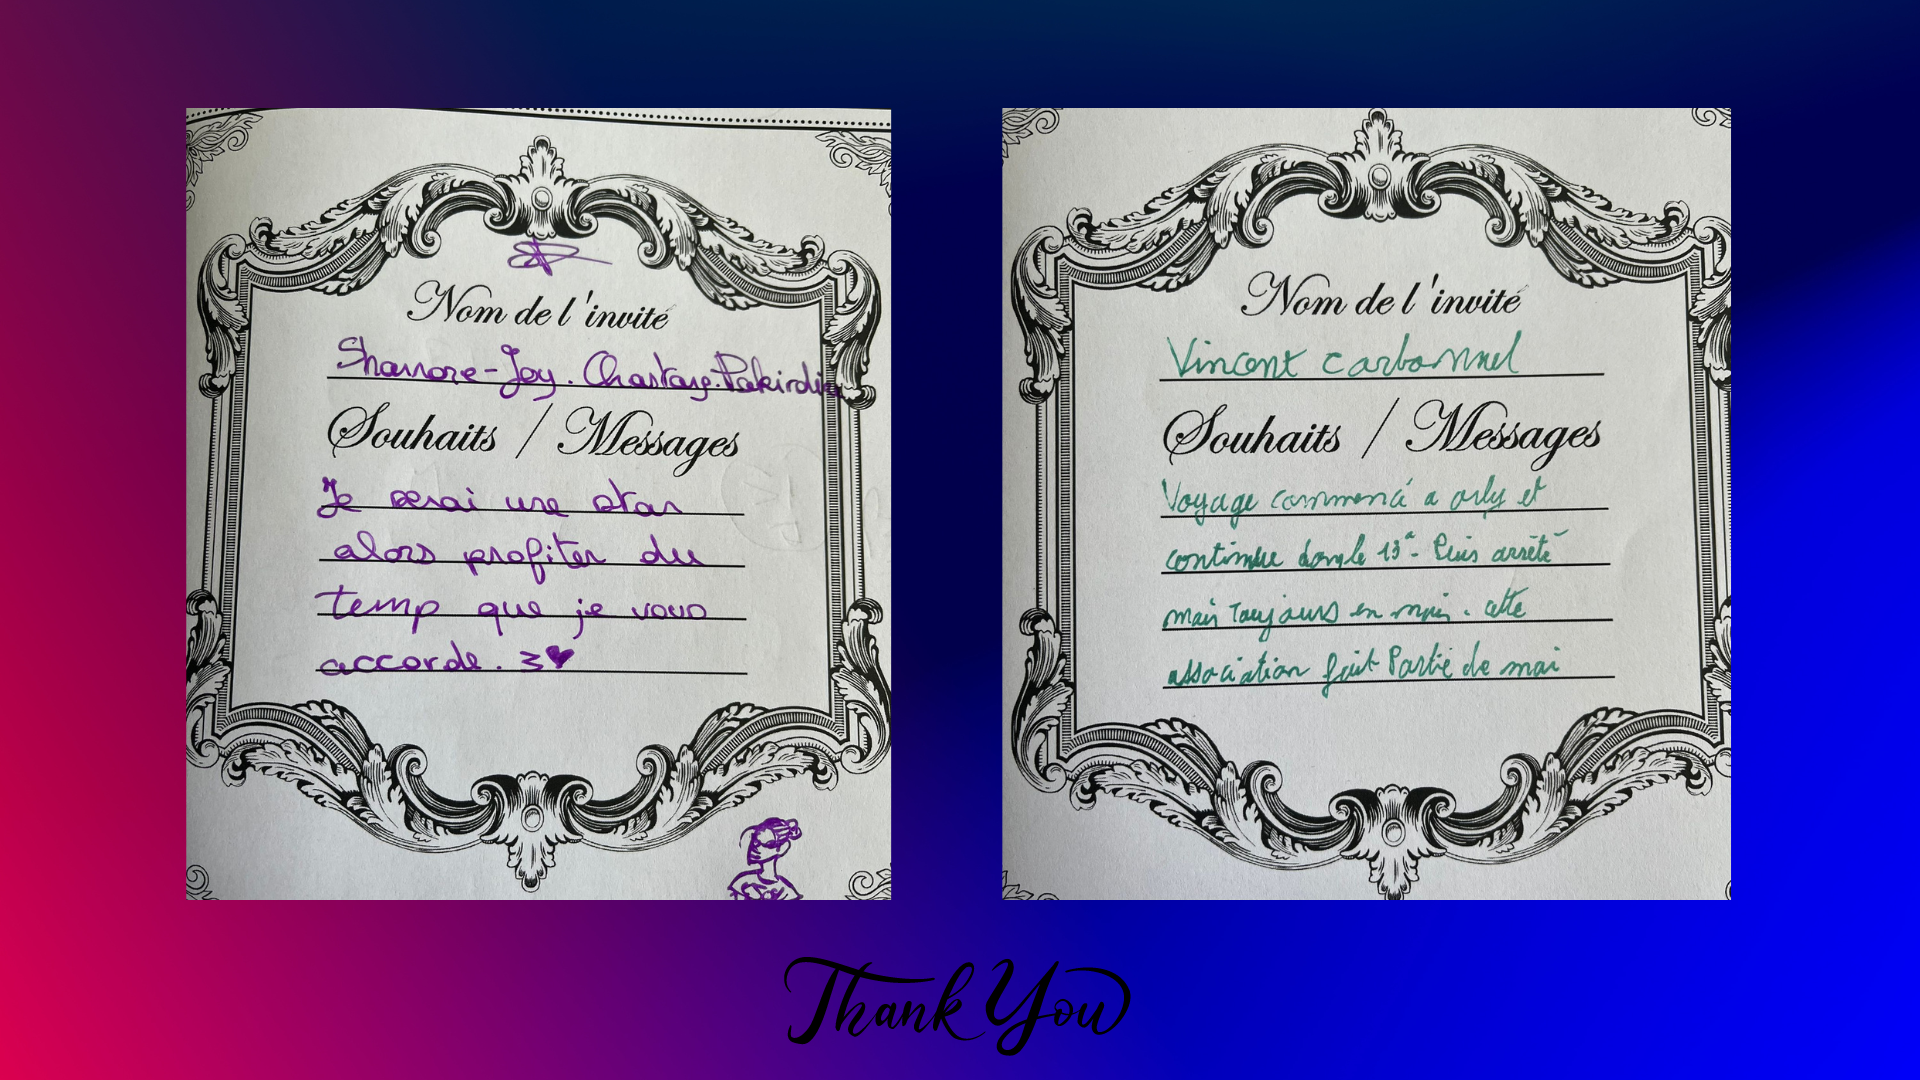 Nom de l'invité
Shannore-Joy. Chastang-Pakirdin
Souhaits / Messages
Je serai une star
alors profiter du
temp que je vous
accorde. 3♥
Nom de l'invité
Vincent Carbonnel
Souhaits / Messages
Voyage commencé a orly et
continue le 13e. Puis arrêté
mais toujours en moi. cette
association fait Partie de moi
Thank You